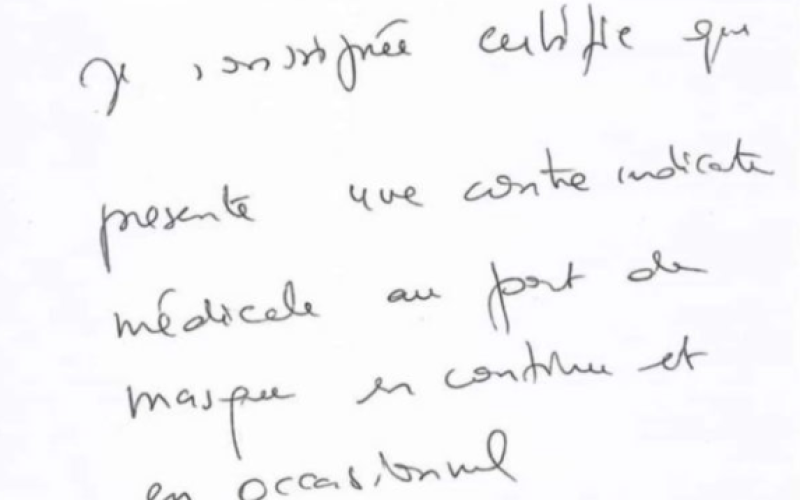 Je soussignée certifie que
présente une contre indicat
médicale au port de
masque en continu et
en occasionnel